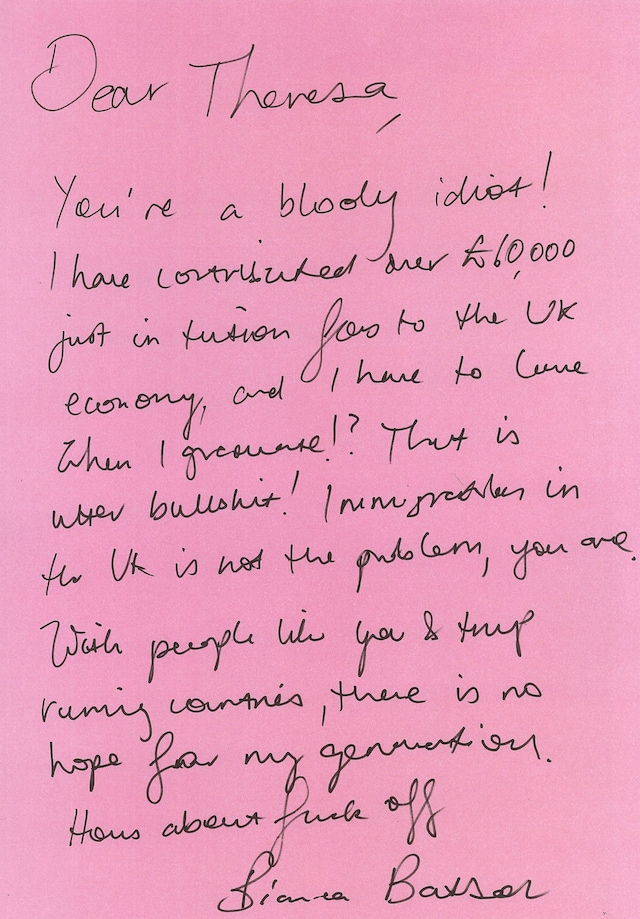 Dear Theresa,
You're a bloody idiot!
I have contributed over £60,000
just in tuition fees to the UK
economy, and I have to leave
when I graduate!? That is
utter bullshit! Immigration in
the UK is not the problem, you are.
With people like you & trump
running countries, there is no
hope for my generation.
Hows about fuck off
Bianca